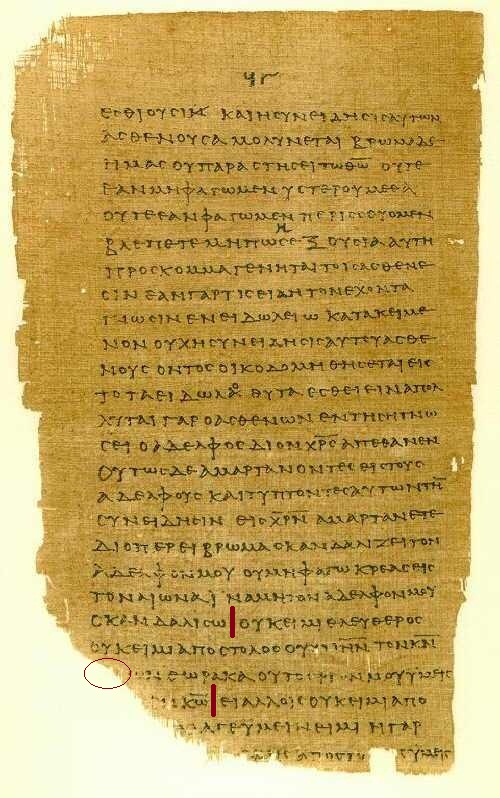 ϥΓ
ΕϹΘΙΟΥϹΙΝ ΚΑΙΗϹΥΝΕΙΔΗϹΙϹΑΥΤΩΝ
ΑϹΘΕΝΟΥϹΑΜΟΛΥΝΕΤΑΙ ΒΡΩΜΑΔΕ
ΗΜΑϹΟΥΠΑΡΑϹΤΗϹΕΙΤΩΘ̅Ω̅ ΟΥΤΕ
ΕΑΝΜΗΦΑΓΩΜΕΝ ΥϹΤΕΡΟΥΜΕΘΑ
ΟΥΤΕΕΑΝΦΑΓΩΜΕΝ ΠΕΡΙϹϹΕΥΟΜΕΝ
ΒΛΕΠΕΤΕΜΗΠΩϹ Η ΕΞΟΥϹΙΑΑΥΤΗ
ΠΡΟϹΚΟΜΜΑΓΕΝΗΤΑΙΤΟΙϹΑϹΘΕΝΕ
ϹΙΝ ΕΑΝΓΑΡΤΙϹΕΙΔΗΤΟΝΕΧΟΝΤΑ
ΓΝΩϹΙΝ ΕΝΕΙΔΩΛΕΙΩ ΚΑΤΑΚΕΙΜΕ
ΝΟΝ ΟΥΧΗϹΥΝΕΙΔΗϹΙϹΑΥΤΟΥΑϹΘΕ
ΝΟΥϹ ΟΝΤΟϹΟΙΚΟΔΟΜΗΘΗϹΕΤΑΙΕΙϹ
ΤΟΤΑΕΙΔΩΛΟΘΥΤΑ ΕϹΘΕΙΕΙΝΑΠΟΛ
ΛΥΤΑΙΓΑΡΟΑϹΘΕΝΩΝ ΕΝΤΗϹΗΓΝΩ
ϹΕΙ ΟΑΔΕΛΦΟϹΔΙΟΝΧ̅Ρ̅Ϲ̅ΑΠΕΘΑΝΕΝ
ΟΥΤΩϹΔΕΑΜΑΡΤΑΝΟΝΤΕϹΕΙϹΤΟΥϹ
ΑΔΕΛΦΟΥϹ ΚΑΙΤΥΠΤΟΝΤΕϹΑΥΤΩΝΤΗΝ
ϹΥΝΕΙΔΗϹΙΝ ΕΙϹΧ̅Ρ̅Ν̅ ΑΜΑΡΤΑΝΕΤΕ
ΔΙΟΠΕΡΕΙ ΒΡΩΜΑϹΚΑΝΔΑΛΙΖΕΙΤΟΝ
ΑΔΕΛΦΟΝΜΟΥ ΟΥΜΗΦΑΓΩ ΚΡΕΑϹΕΙϹ
ΤΟΝΑΙΩΝΑ ΙΝΑΜΗΤΟΝΑΔΕΛΦΟΝΜΟΥ
ϹΚΑΝΔΑΛΙϹΩ ΟΥΚΕΙΜΙΕΛΕΥΘΕΡΟϹ
ΟΥΚΕΙΜΙΑΠΟϹΤΟΛΟϹΟΥΧΙΙ̅Η̅Ν̅ ΤΟΝΚ̅Ν̅
ΩΝ ΕΩΡΑΚΑΟΥΤΟΕΡΓΟΝΜΟΥΥΜΕΙϹ
Κ̅Ω̅ ΕΙΑΛΛΟΙϹΟΥΚΕΙΜΙΑΠΟ
ΑΛΛΑΓΕΥΜΕΙΝΕΙΜΙ ΗΓΑΡ
ΑΠΟϹΤΟ ΥΜΕΙϹ